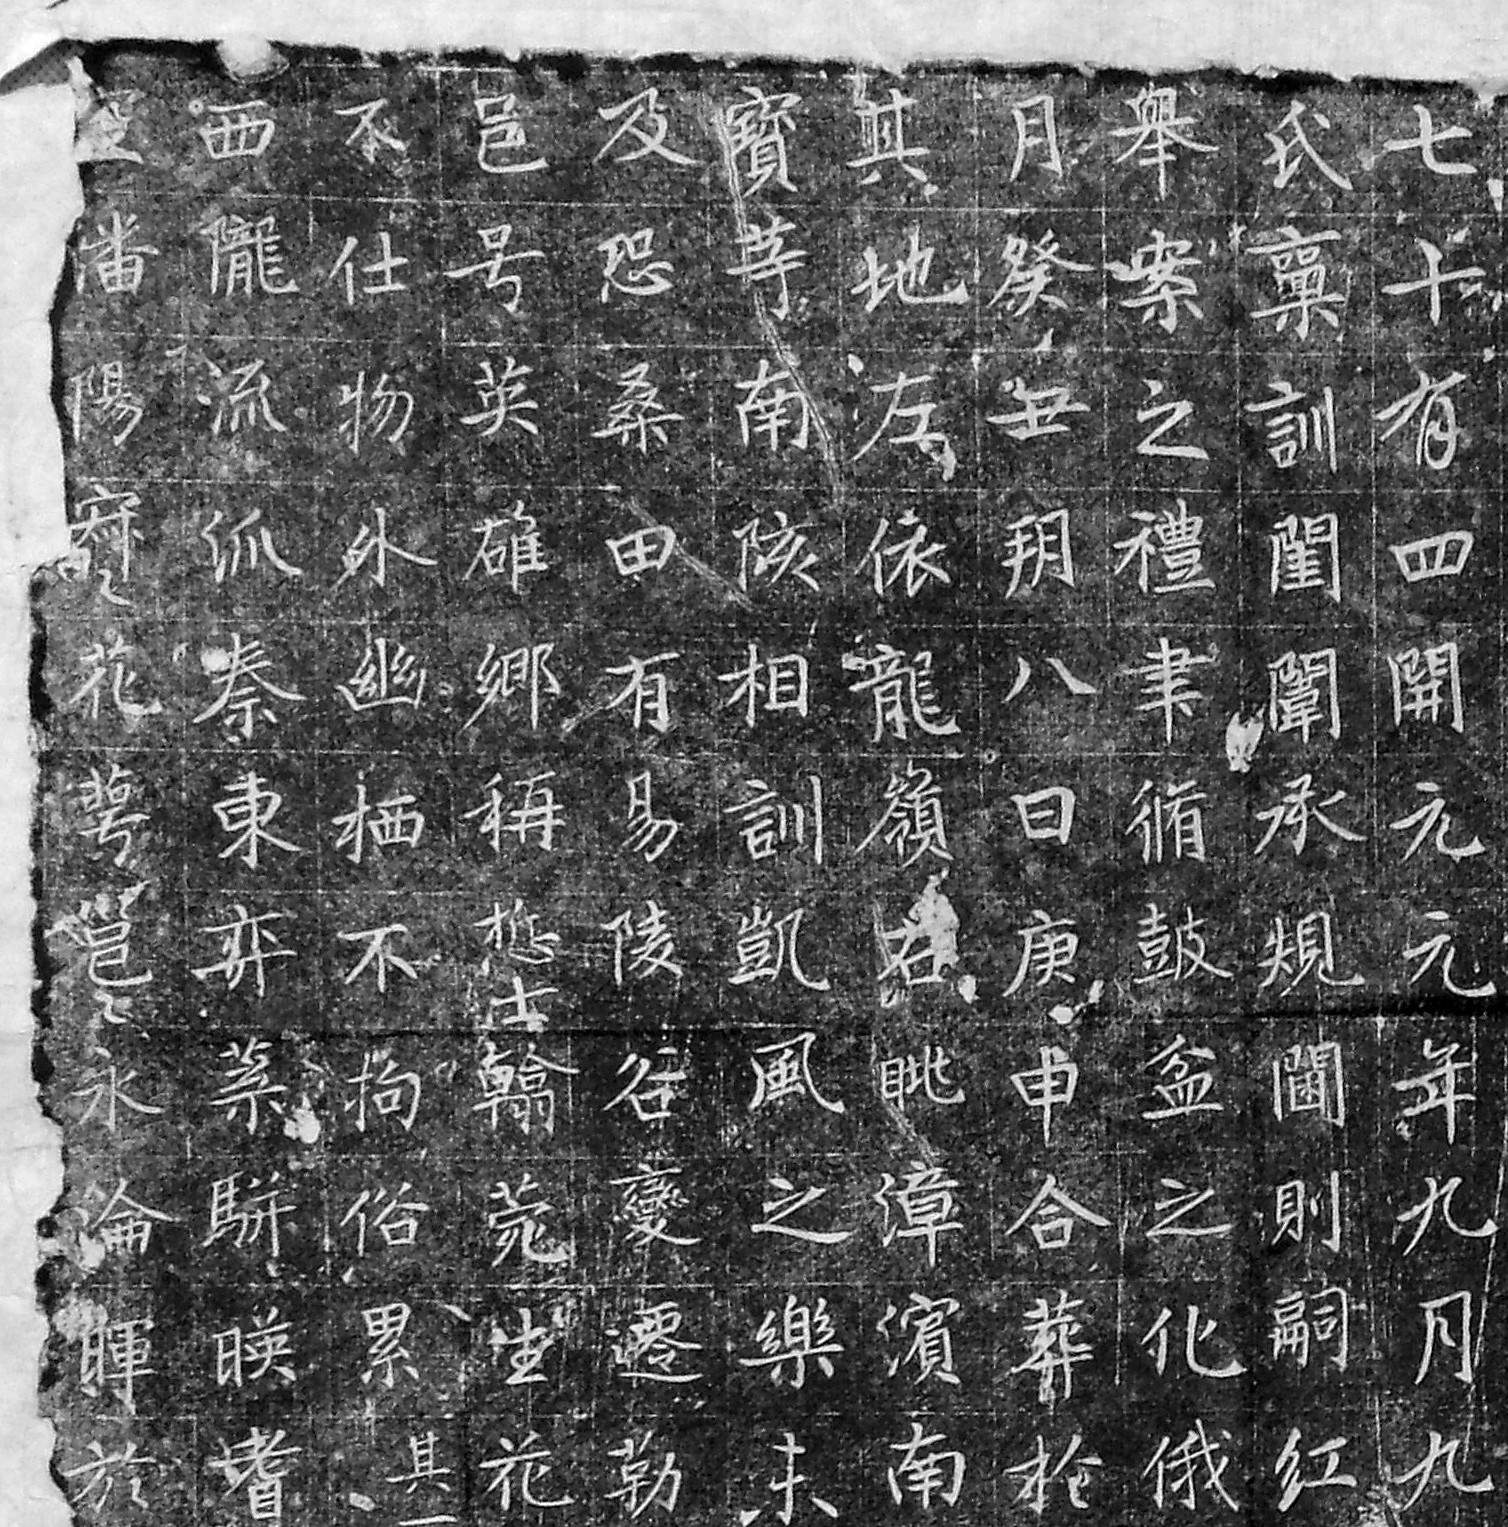 七十有四開元元年九月九
氏稟訓閨闈承規閫則嗣紅
舉案之禮聿脩鼓盆之化俄
月癸丑玥八日庚申合葬於
其地左依龍嶺右眺漳濱南
寶等南陔相訓凱風之樂未
及恐桑田有易陵谷變遷勒
邑号英雄鄉稱悊士翰菀生花
不仕物外幽栖不拘俗累其一
西隴流派秦東弈葉駢暎耆
潘陽穆〻花萼邕〻永淪暉於